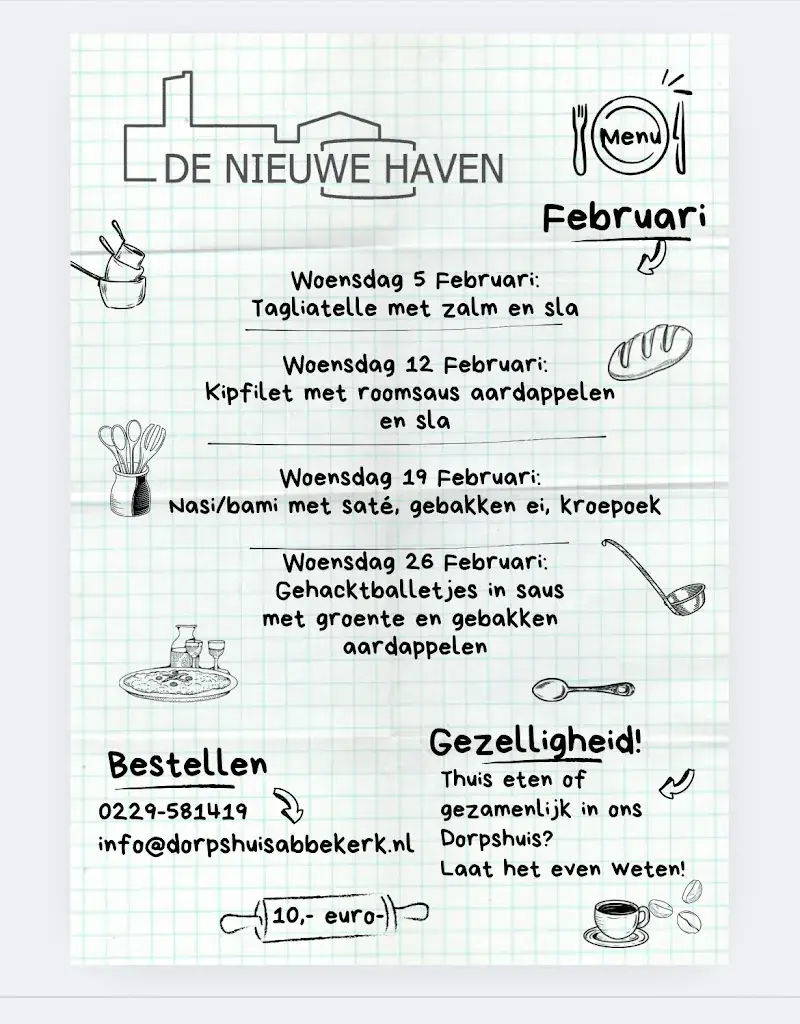 DE NIEUWE HAVEN
Menu
Februari
Woensdag 5 Februari:
Tagliatelle met zalm en sla
Woensdag 12 Februari:
Kipfilet met roomsaus aardappelen
en sla
Woensdag 19 Februari:
Nasi/bami met saté, gebakken ei, kroepoek
Woensdag 26 Februari:
Gehacktballetjes in saus
met groente en gebakken
aardappelen
Bestellen
0229-581419
info@dorpshuisabbekerk.nl
Gezelligheid!
Thuis eten of
gezamenlijk in ons
Dorpshuis?
Laat het even weten!
10,- euro-